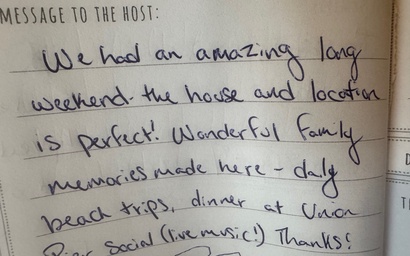 MESSAGE TO THE HOST:
We had an amazing long
weekend. the house and location
is perfect! Wonderful family
memories made here - daily
beach trips, dinner at Union
Social (live music!) Thanks!